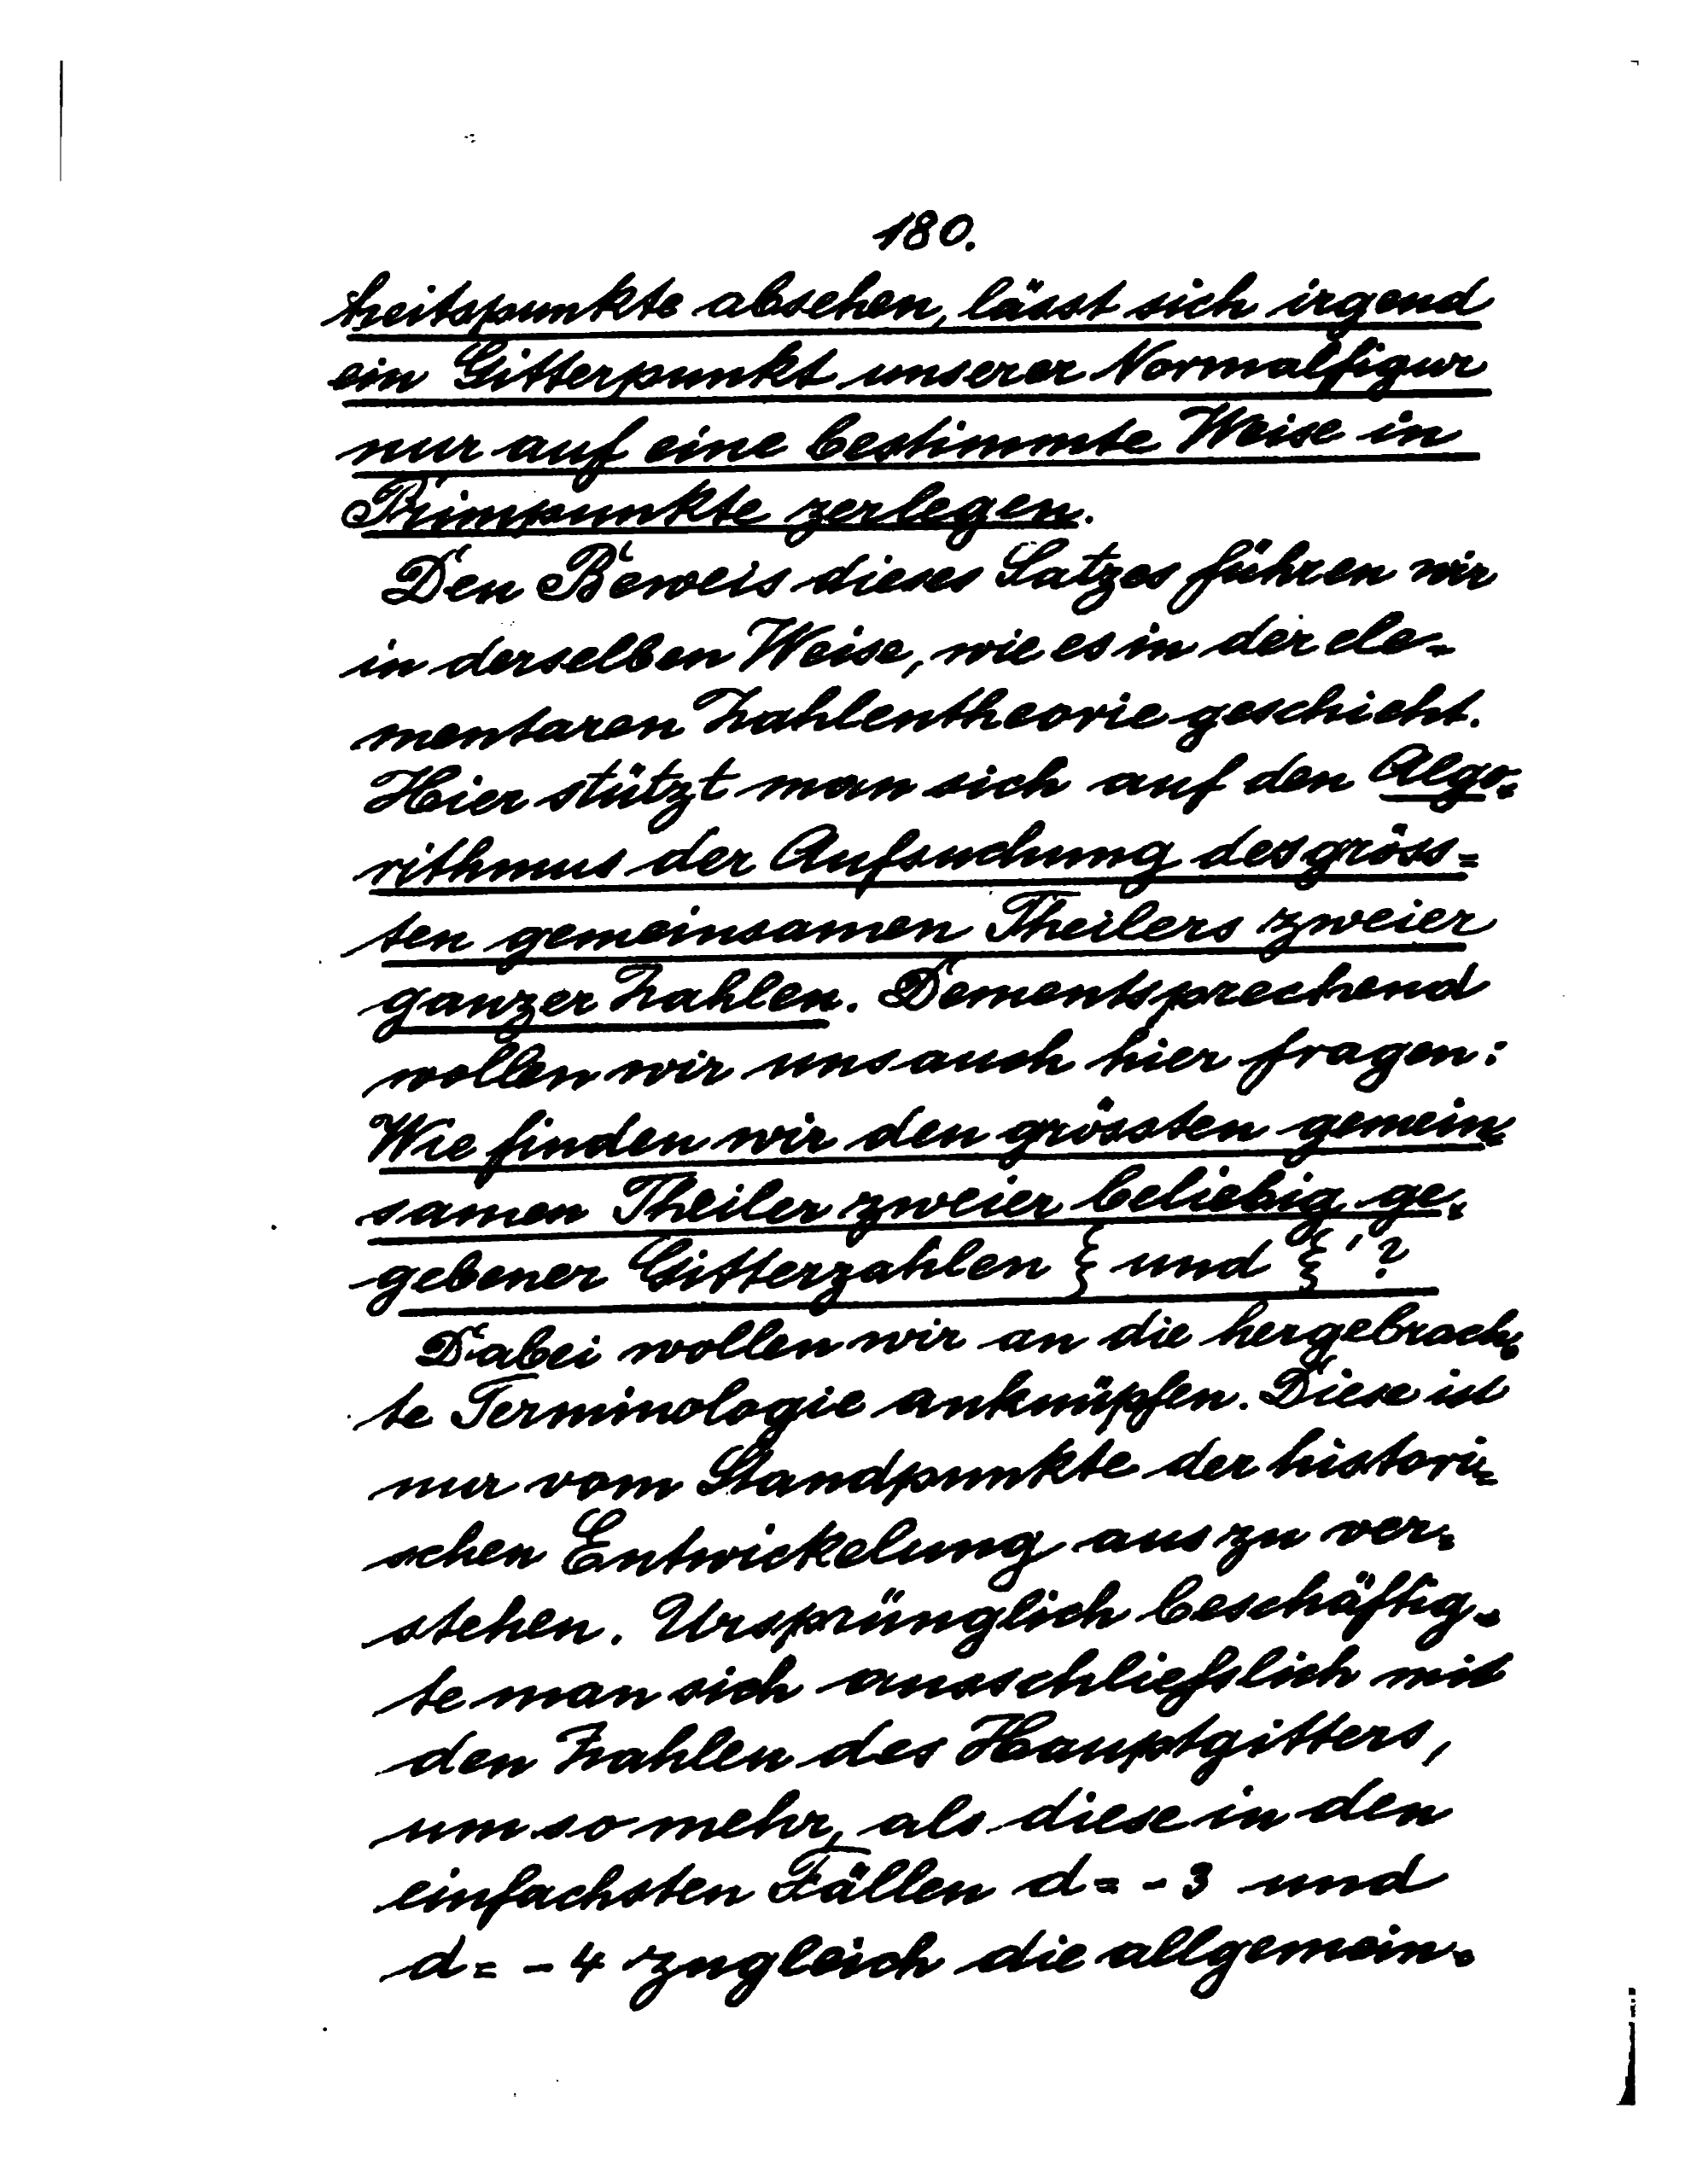 180.
heitspunkte absehen, lässt sich irgend
ein Gitterpunkt unserer Normalfigur
nur auf eine bestimmte Weise in
Primpunkte zerlegen.
Den Beweis dieses Satzes führen wir
in derselben Weise, wie es in der ele-
mentaren Zahlentheorie geschieht.
Hier stützt man sich auf den Algo-
rithmus der Aufsuchung des gröss-
ten gemeinsamen Theilers zweier
ganzer Zahlen. Dementsprechend
wollen wir uns auch hier fragen:
Wie finden wir den grössten gemein-
samen Theiler zweier beliebig ge-
gebener Gitterzahlen ξ und ξ'?
Dabei wollen wir an die hergebrach-
te Terminologie anknüpfen. Diese ist
nur vom Standpunkte der histori-
schen Entwickelung aus zu ver-
stehen. Ursprünglich beschäftig-
te man sich ausschließlich mit
den Zahlen des Hauptgitters,
um so mehr, als diese in den
einfachsten Fällen d = -3 und
d = -4 zugleich die allgemein-